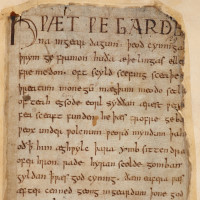 HǷÆT ǷE GARDE
na in geardagum. þeod cyninga
þrym ge frunon huða æþelingas elle
fremedon. oft scyld scefing sceaþe
þreatum monegum mægþum meodo setla
of teah egsode eorl syððan ærest ƿear
fea sceaft funden he þæs frofre geba
ƿeox under ƿolcnum ƿeorð myndum þah
oð þ him æghƿylc þara ymb sittendra
ofer hron rade hyran scolde gomban
gyldan þ ƿæs god cyning. ðæm eafera ƿæs
æfter cenned geong in geardum þone god